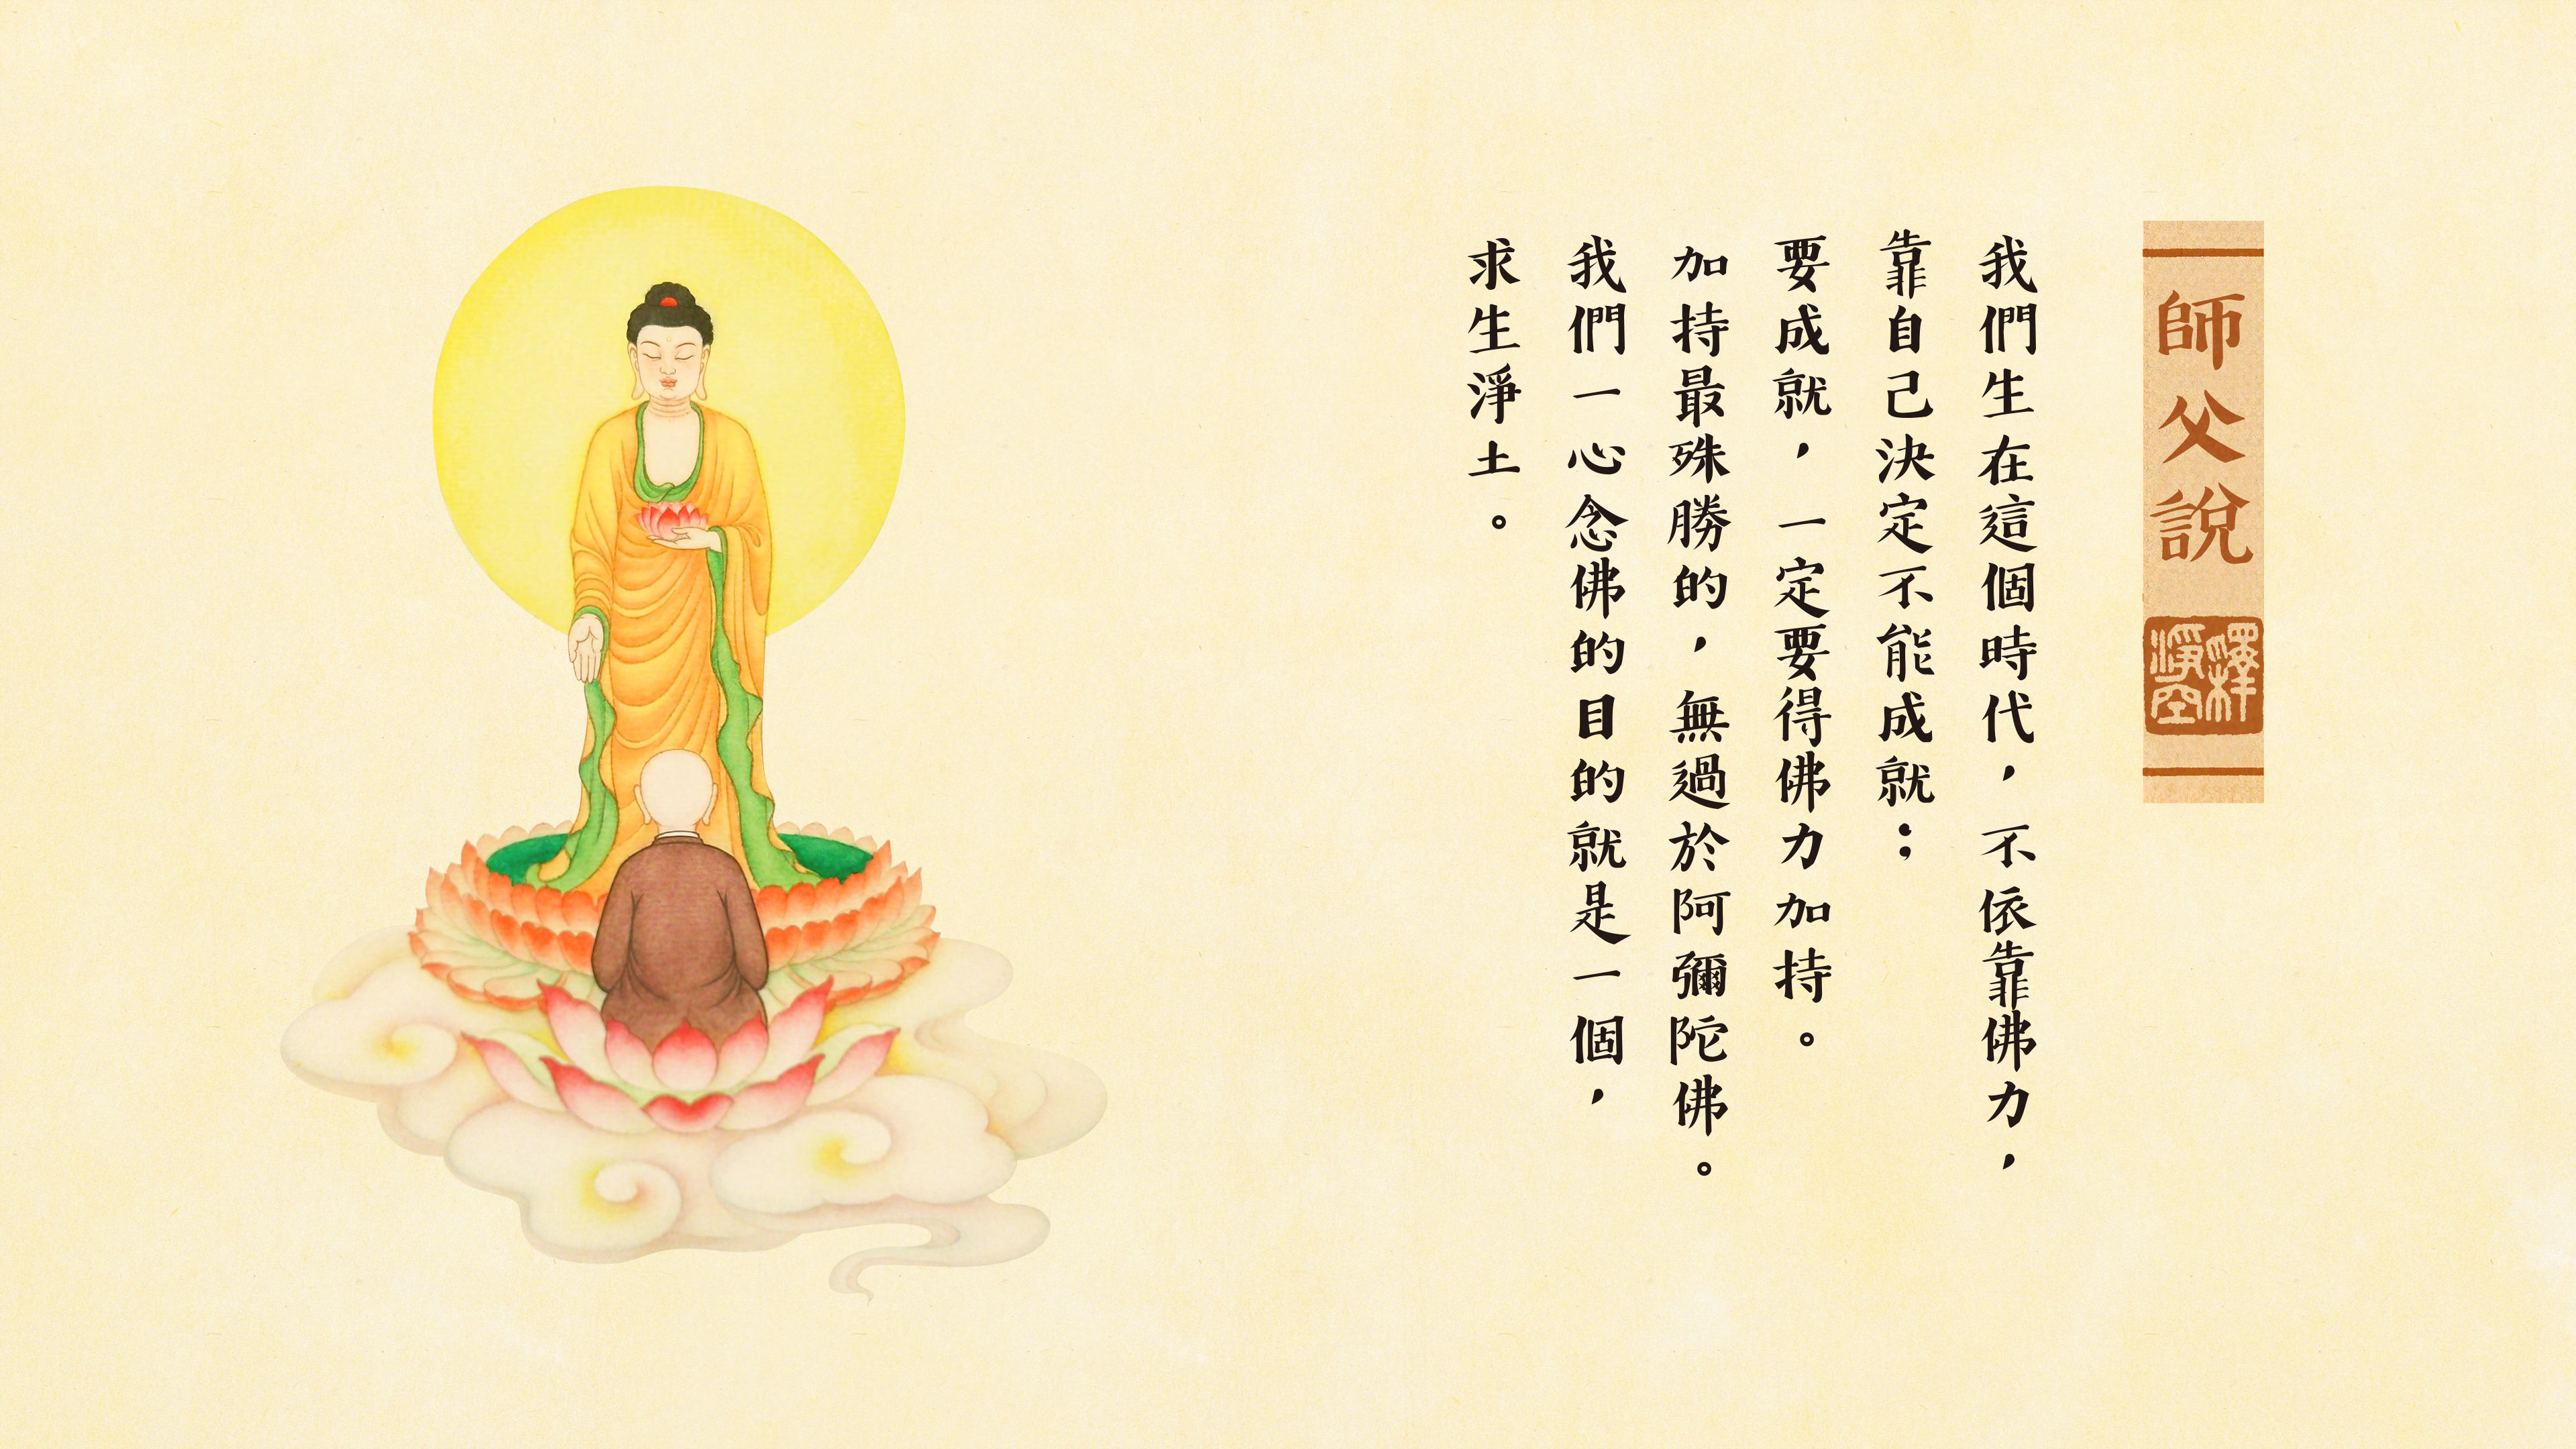 師父說
釋淨空
我們生在這個時代，不依靠佛力，
靠自己決定不能成就；
要成就，一定要得佛力加持。
加持最殊勝的，無過於阿彌陀佛。
我們一心念佛的目的就是一個，
求生淨土。